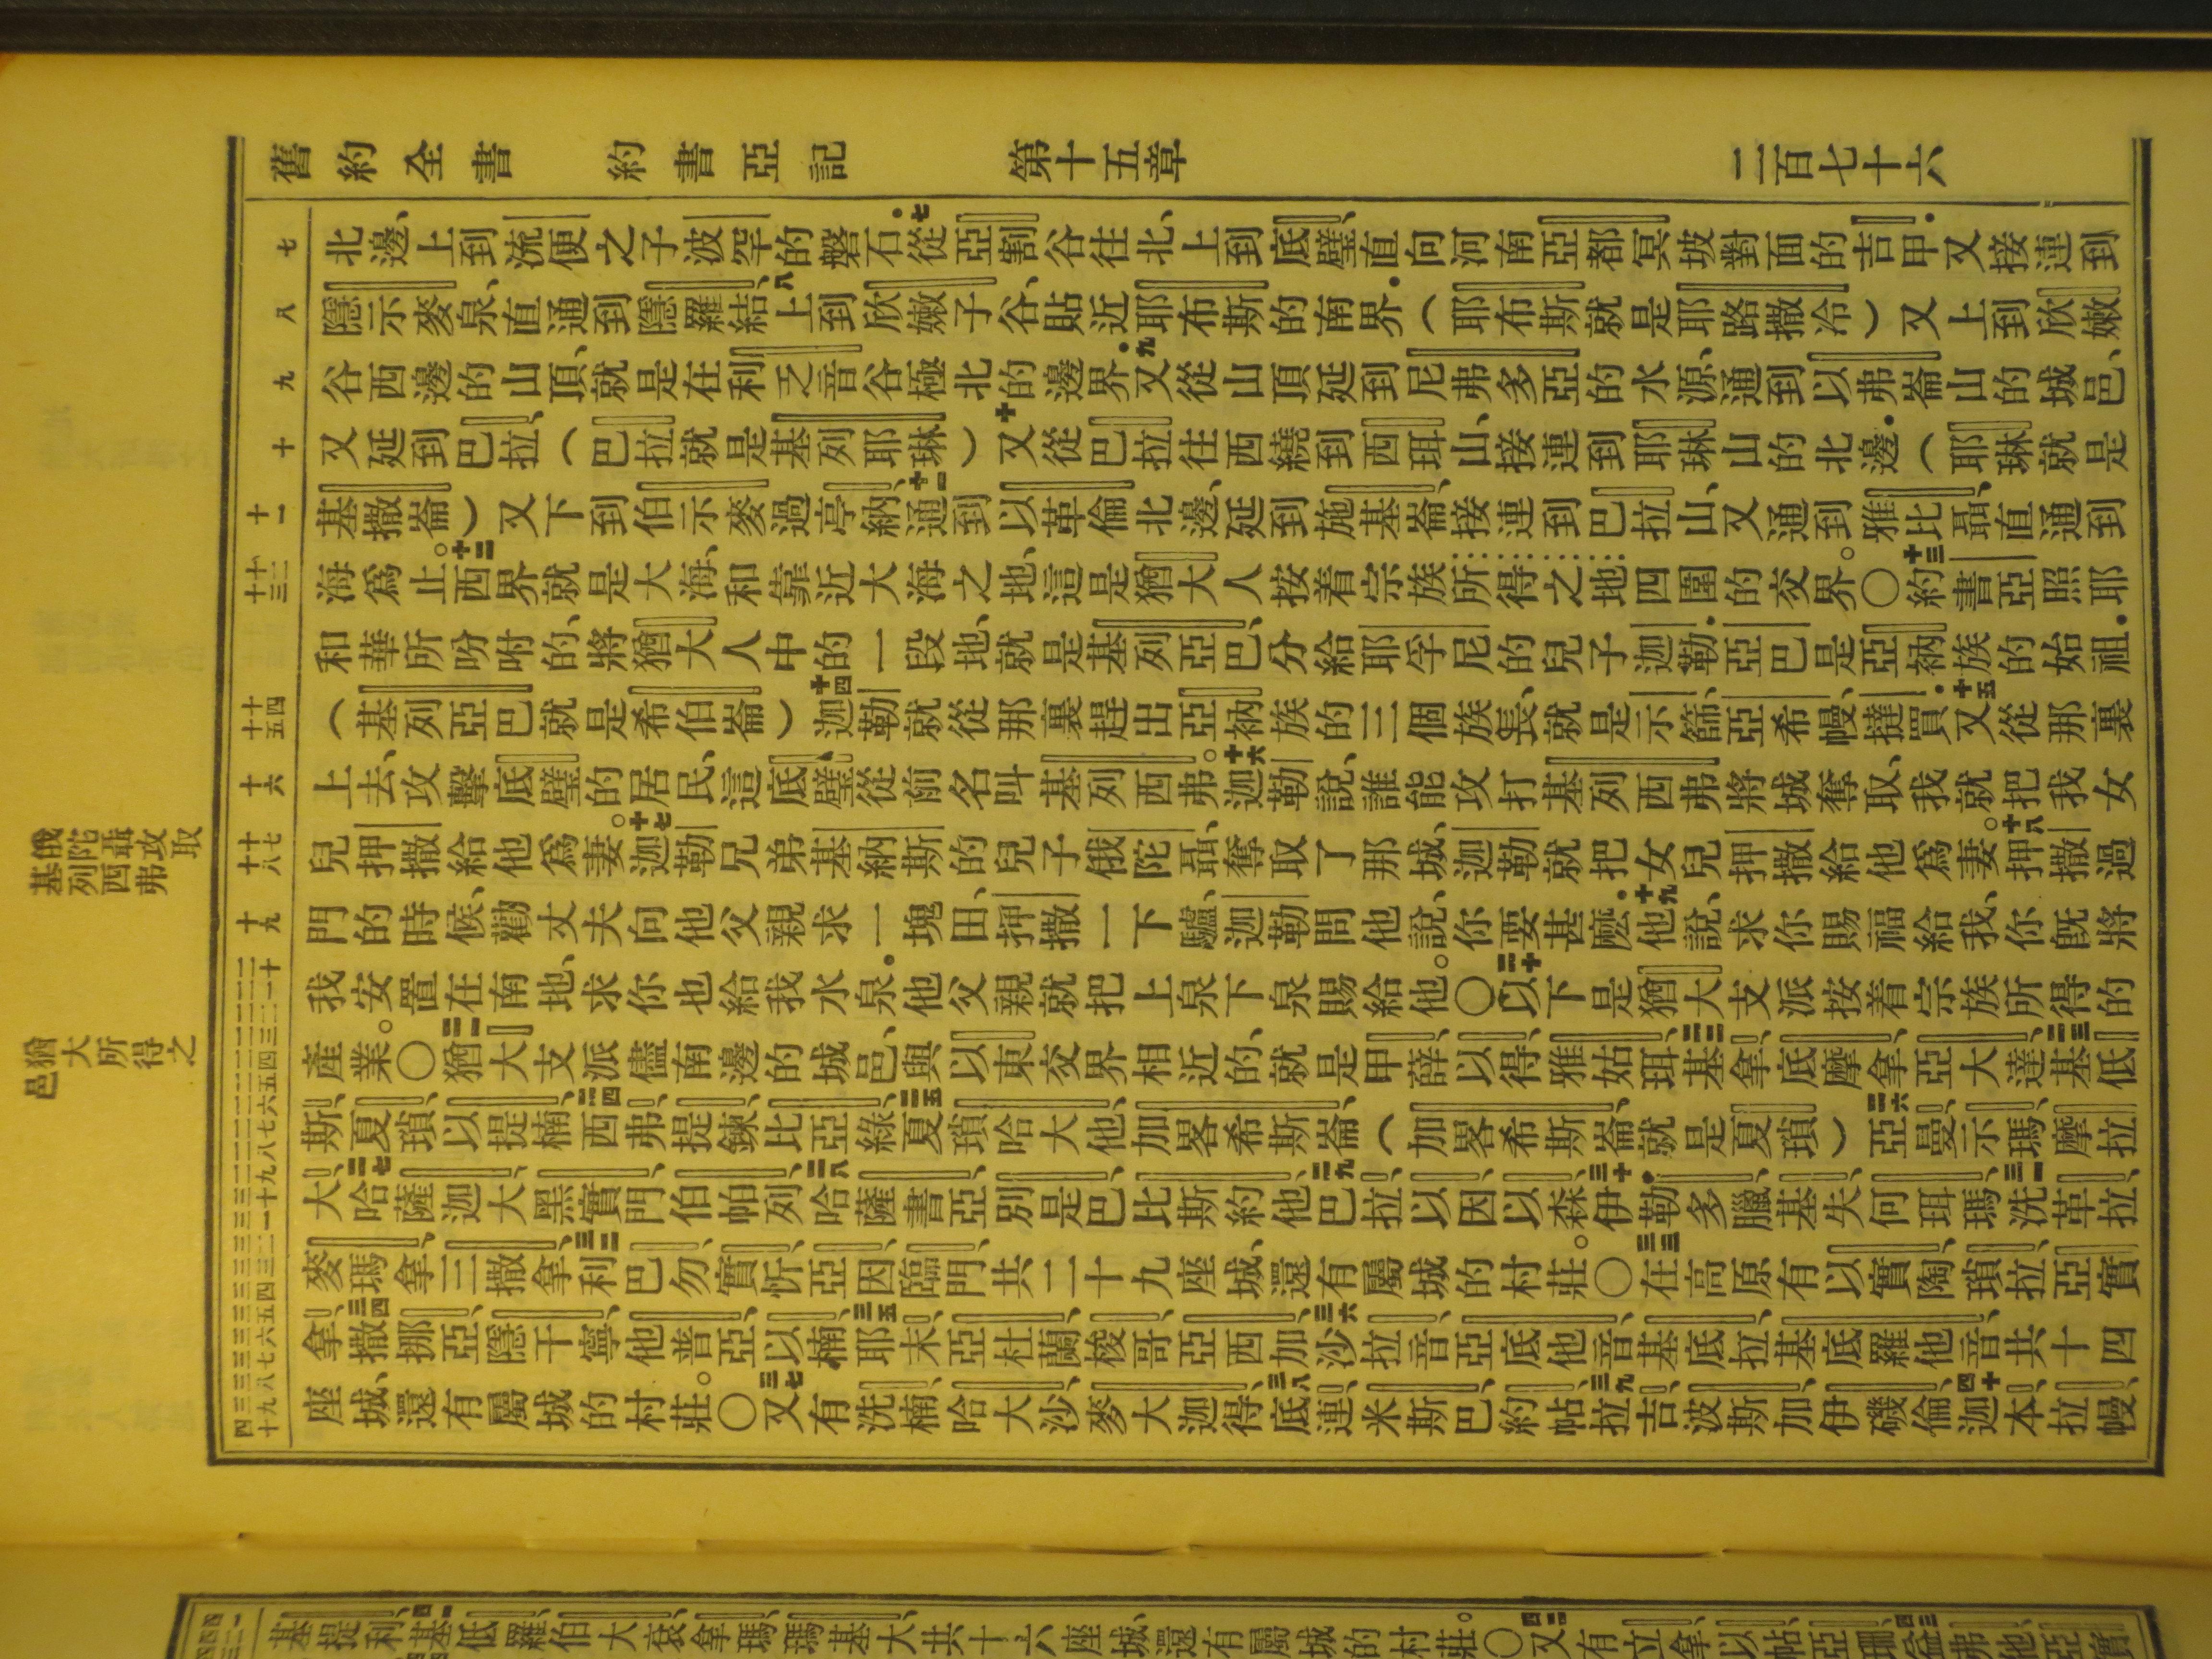 舊約全書 約書亞記 第十五章 二百七十六
七 八 九 十 十一 十二 十三 十四 十五 十六 十七 十八 十九
北邊、上到流便之子波罕的磐石．七從亞割谷往北、上到底璧、直向河南亞都冥坡對面的吉甲．又接連到
隱示麥泉、直通到隱羅結、八上到欣嫩子谷、貼近耶布斯的南界．（耶布斯就是耶路撒冷）又上到欣嫩
谷西邊的山頂、就是在利乏音谷極北的邊界．九又從山頂延到尼弗多亞的水源、通到以弗崙山的城邑、
又延到巴拉、（巴拉就是基列耶琳）十又從巴拉往西繞到西珥山、接連到耶琳山的北邊．（耶琳就是
基撒崙）又下到伯示麥過亭納、十一通到以革倫北邊、延到施基崙、接連到巴拉山、又通到雅比聶、直通到
海爲止。十二西界就是大海、和靠近大海之地、這是猶大人按着宗族所得之地四圍的交界。〇十三約書亞照耶
和華所吩咐的、將猶大人中的一段地、就是基列亞巴、分給耶孚尼的兒子迦勒．亞巴是亞衲族的始祖．
（基列亞巴就是希伯崙）十四迦勒就從那裏趕出亞衲族的三個族長、就是示篩、亞希幔、撻買．十五又從那裏
上去、攻擊底璧的居民、這底璧從前名叫基列西弗。十六迦勒說、誰能攻打基列西弗將城奪取、我就把我女
兒押撒給他爲妻。十七迦勒兄弟基納斯的兒子俄陀聶、奪取了那城、迦勒就把女兒押撒給他爲妻。十八押撒過
門的時候、勸丈夫向他父親求一塊田、押撒一下驢、迦勒問他說、你要甚麽．十九他說、求你賜福給我、你旣將
我安置在南地、求你也給我水泉．他父親就把上泉下泉賜給他。〇二十以下是猶大支派按着宗族所得的
產業。〇二一猶大支派儘南邊的城邑、與以東交界相近的、就是甲薛、以得、雅姑珥、二二基拿、底摩拿、亞大達、二三基低
斯、夏瑣、以提楠、二四西弗、提鍊、比亞綠、二五夏瑣哈大他、加畧希斯崙、（加畧希斯崙就是夏瑣）二六亞曼、示瑪、摩拉
大、二七哈薩迦大、黑實門、伯帕列、二八哈薩書亞、別是巴、比斯約他、二九巴拉、以因、以森、三十伊勒多臘、基失、何珥瑪、三一洗革拉、
麥瑪拿、三撒拿、三二利巴勿、實忻、亞因、臨門、共二十九座城、還有屬城的村莊。〇三三在高原有以實陶、瑣拉、亞實
拿、三四撒挪亞、隱干寧、他普亞、以楠、三五耶末、亞杜蘭、梭哥、亞西加、三六沙拉音、亞底他音、基底拉、基底羅他音、共十四
座城、還有屬城的村莊。〇三七又有洗楠、哈大沙、麥大迦得、三八底連、米斯巴、約帖、三九拉吉、波斯加、伊磯倫、四十迦本、拉幔、
俄陀聶攻取基列西弗
猶大所得之邑
基提利、四一基低羅、伯大袞、拿瑪、瑪基大、共十六座城、還有屬城的村莊。〇四二又有立拿、以帖、亞珊、